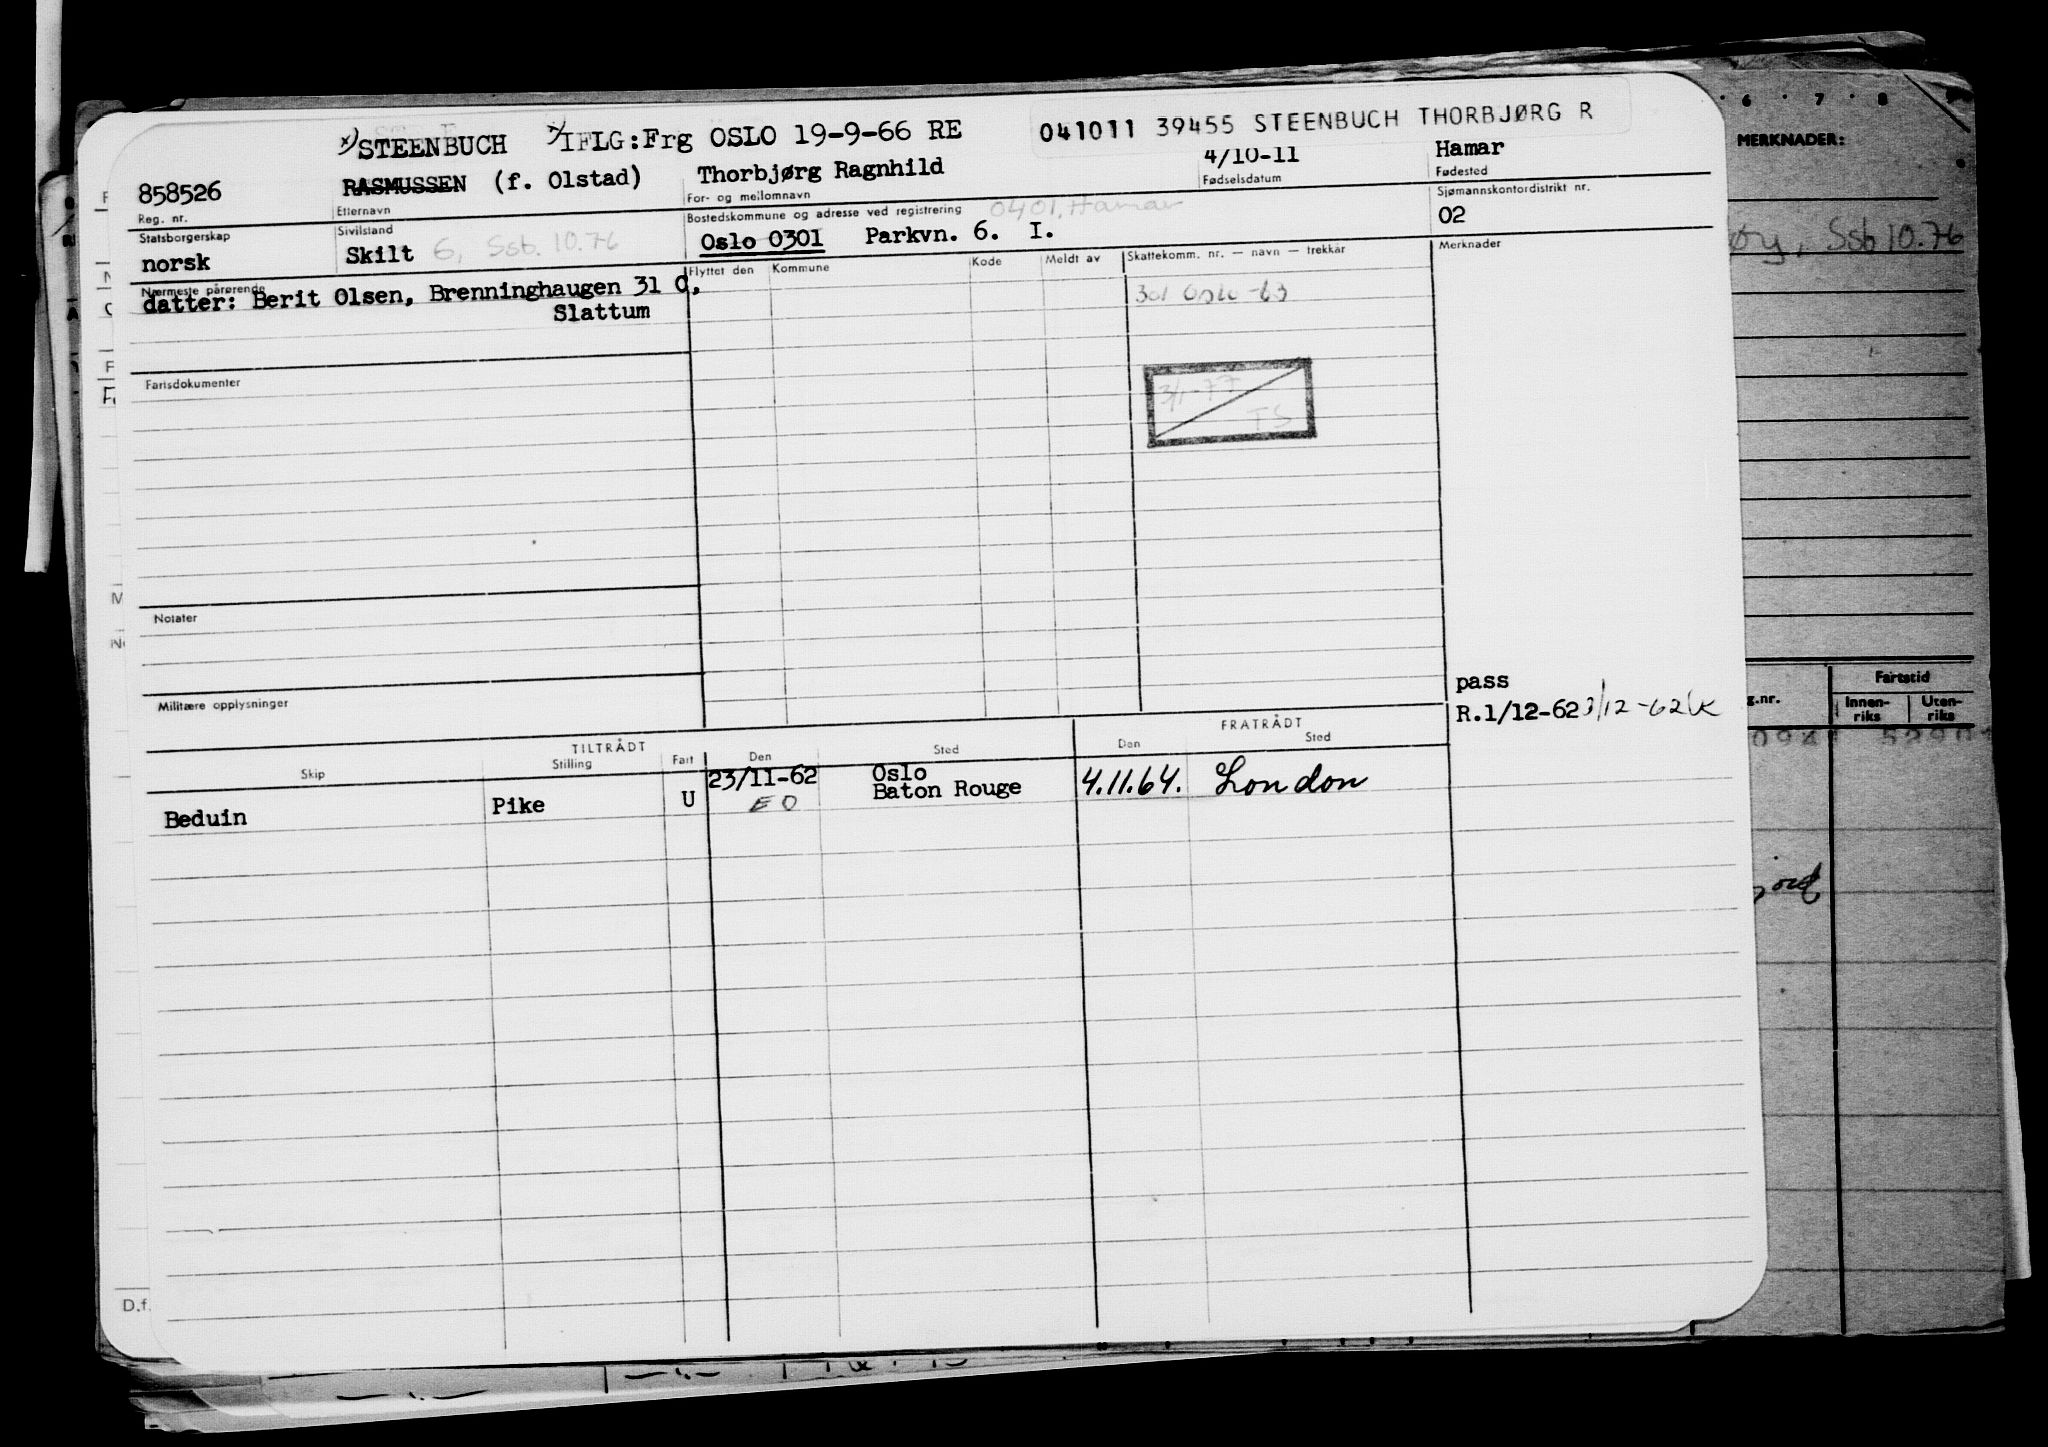 x) STEENBUCH x) IFLG:Frg OSLO 19-9-66 RE
041011 39455 STEENBUCH THORBJØRG R
858526 RASMUSSEN (f. Olstad) Thorbjørg Ragnhild 4/10-11 Hamar
Reg. nr. Etternavn For- og mellomnavn Fødselsdatum Fødested
Statsborgerskap Sivilstand Bostedskommune og adresse ved registrering 0401, Hamar Sjømannskontordistrikt nr.
norsk Skilt 6, Ssb. 10.76 Oslo 0301 Parkvn. 6. I. 02
Nærmeste pårørende Flyttet den Kommune Kode Meldt av Skattekomm. nr. — navn — trekkår Merknader
datter: Berit Olsen, Brenninghaugen 31 C, 301 Oslo -63
Slattum
Fartsdokumenter
3/1-77
TS
Notater
Militære opplysninger
pass
R.1/12-62 3/12-62
TILTRÅDT FRATRÅDT
Skip Stilling Fart Den Sted Den Sted
Beduin Pike U 23/11-62 Oslo 4.11.64. London
EO Baton Rouge
6 7 8
MERKNADER:
Ssb 10.76
Fartstid
g.nr. Innen-riks Uten-riks
D.f.